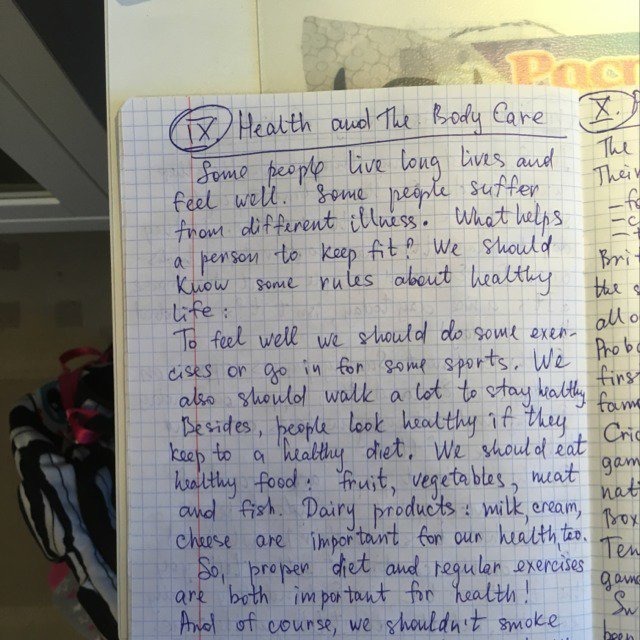 IX Health and The Body Care
Some people live long lives and
feel well. Some people suffer
from different illness. What helps
a person to keep fit? We should
know some rules about healthy
life:
To feel well we should do some exer-
cises or go in for some sports. We
also should walk a lot to stay healthy
Besides, people look healthy if they
keep to a healthy diet. We should eat
healthy food: fruit, vegetables, meat
and fish. Dairy products: milk, cream,
cheese are important for our health, too.
So, proper diet and regular exercises
are both important for health!
And of course, we shouldn't smoke
X.
The
Their
Brit
the s
all o
Proba
first
farm
Cric
gam
nat
Box
Ten
game